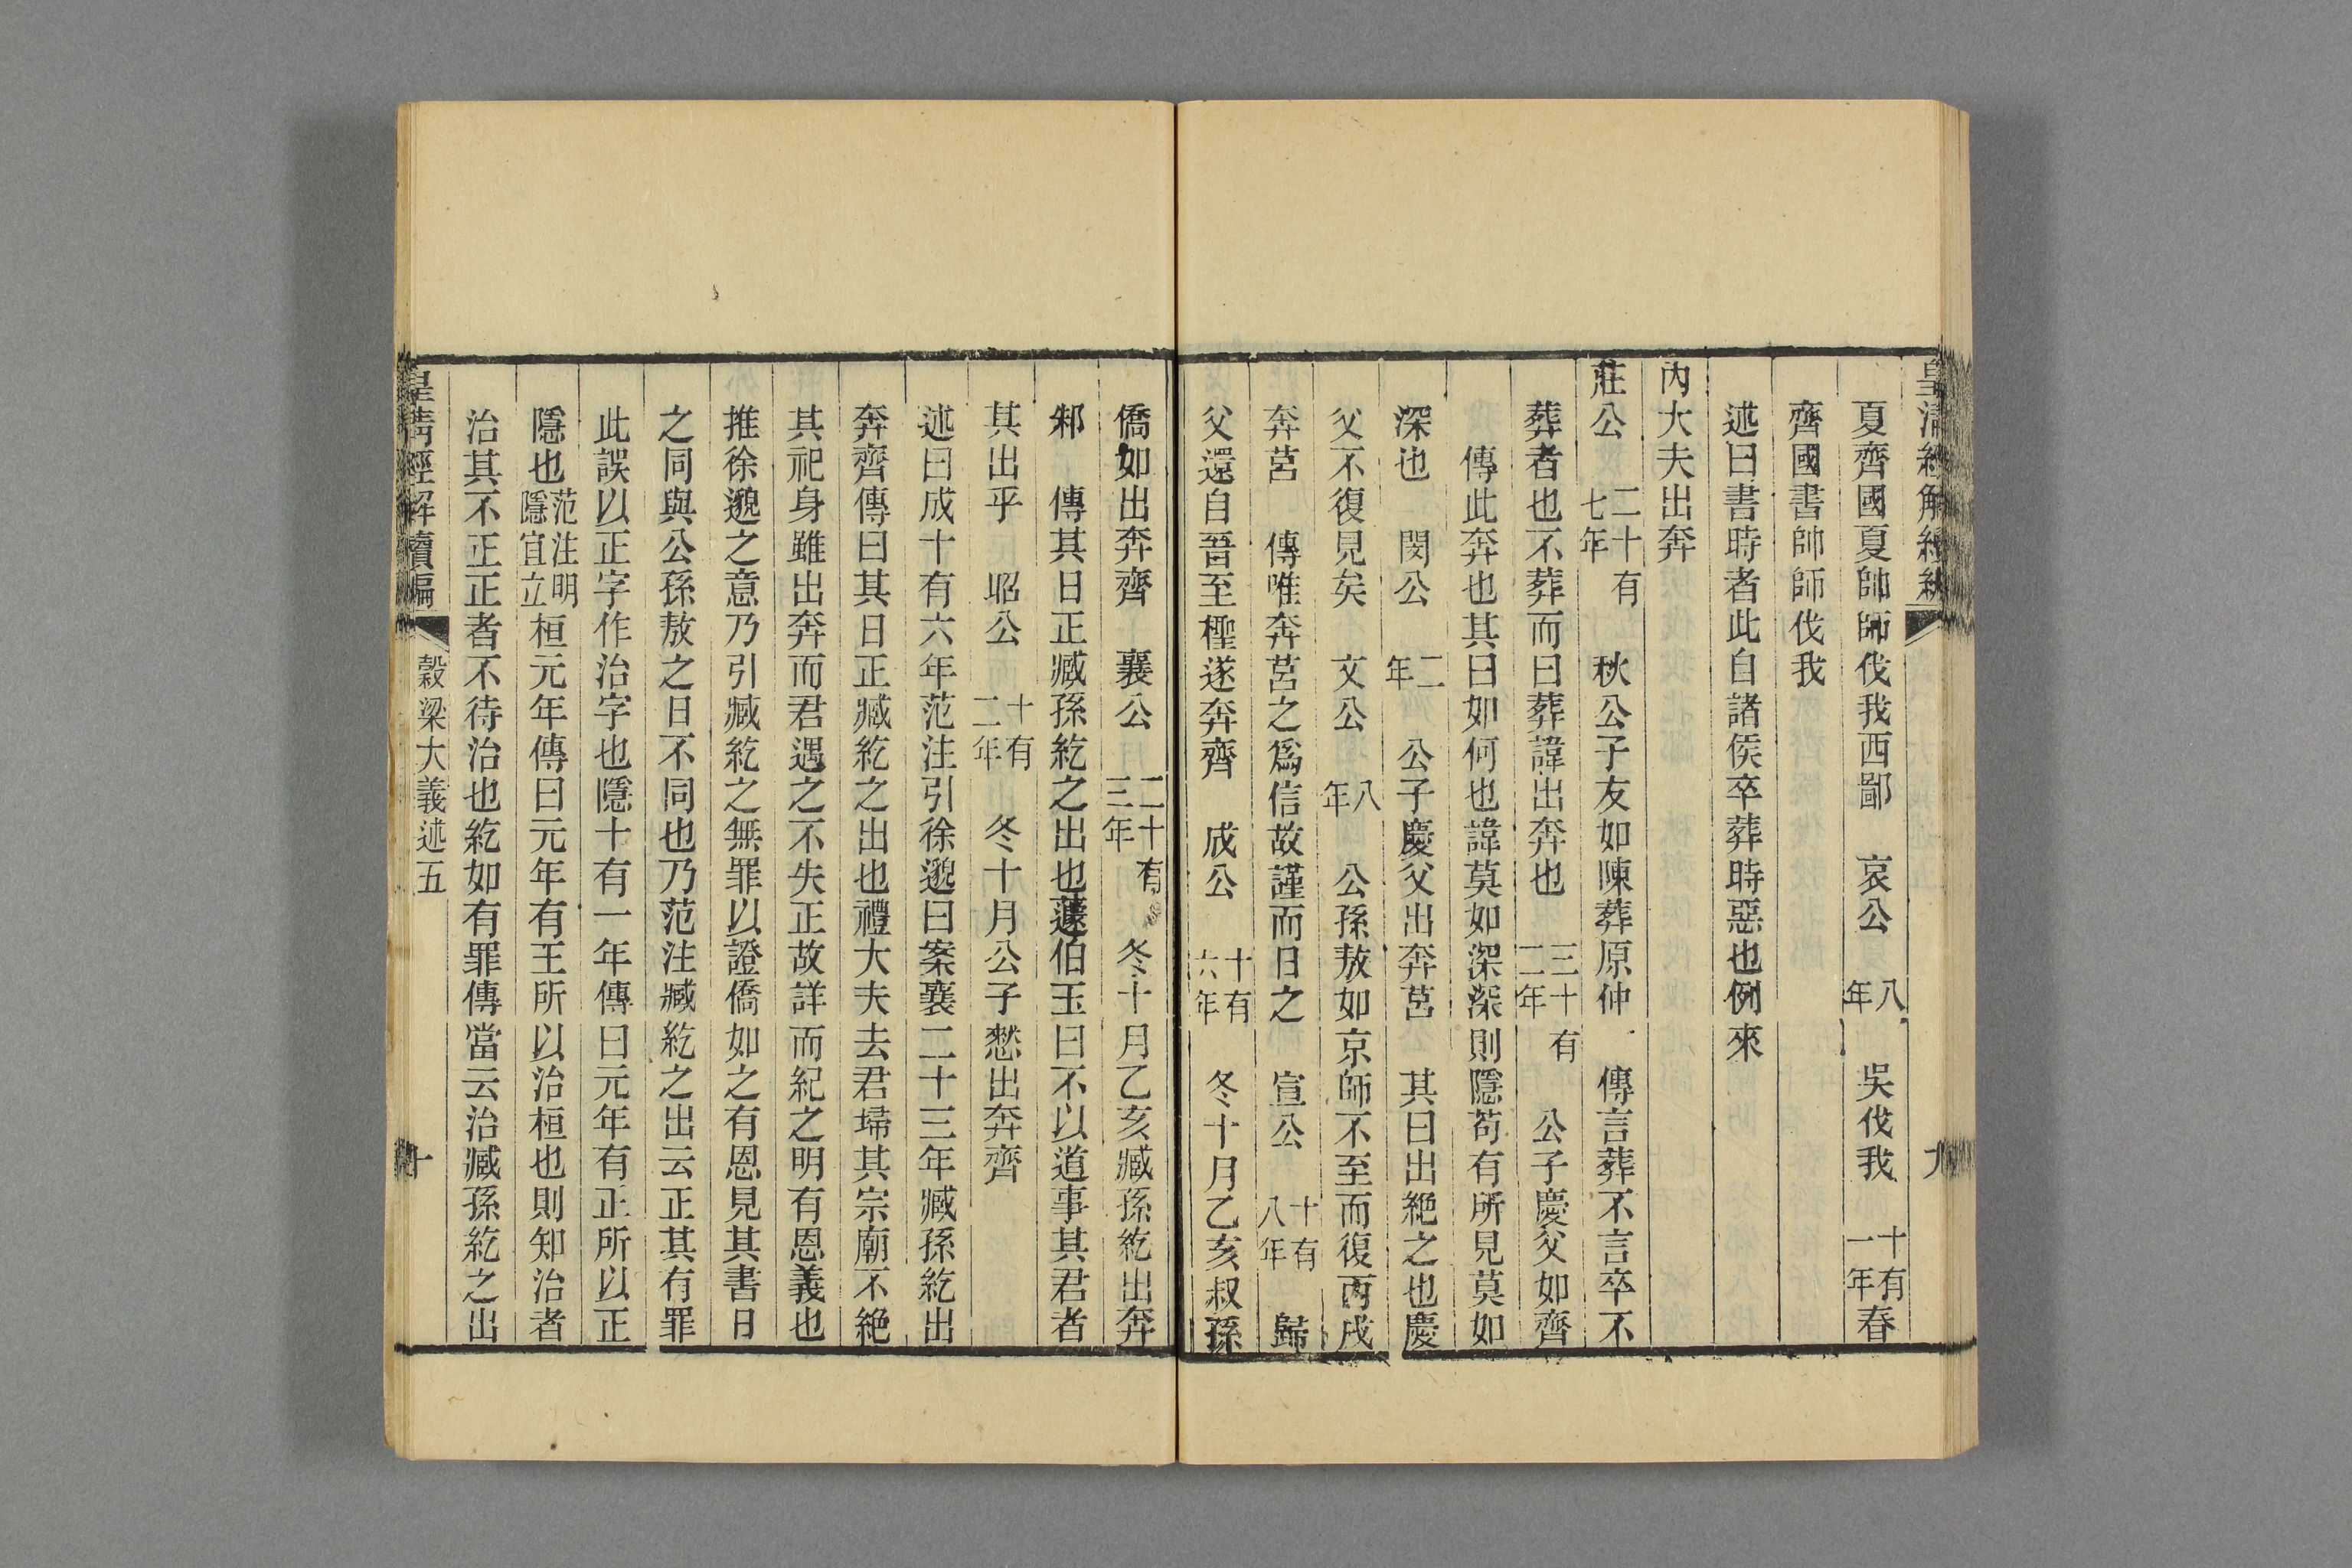 皇清經解續編
九
夏齊國夏帥師伐我西鄙　哀公　八年　吳伐我　十有一年春
齊國書帥師伐我
述曰書時者此自諸侯卒葬時惡也例來
內大夫出奔
莊公　二十有七年　秋公子友如陳葬原仲　傳言葬不言卒不
葬者也不葬而曰葬諱出奔也　三十有二年　公子慶父如齊
傳此奔也其曰如何也諱莫如深深則隱苟有所見莫如
深也　閔公　二年　公子慶父出奔莒　其曰出絕之也慶
父不復見矣　文公　八年　公孫敖如京師不至而復丙戌
奔莒　傳唯奔莒之爲信故謹而日之　宣公　十有八年　歸
父還自晉至檉遂奔齊　成公　十有六年　冬十月乙亥叔孫
僑如出奔齊　襄公　二十有三年　冬十月乙亥臧孫紇出奔
邾　傳其日正臧孫紇之出也蘧伯玉曰不以道事其君者
其出乎　昭公　十有二年　冬十月公子憖出奔齊
述曰成十有六年范注引徐邈曰案襄二十三年臧孫紇出
奔齊傳曰其日正臧紇之出也禮大夫去君埽其宗廟不絕
其祀身雖出奔而君遇之不失正故詳而紀之明有恩義也
推徐邈之意乃引臧紇之無罪以證僑如之有恩見其書日
之同與公孫敖之日不同也乃范注臧紇之出云正其有罪
此誤以正字作治字也隱十有一年傳曰元年有正所以正
隱也范注明隱宜立桓元年傳曰元年有王所以治桓也則知治者
治其不正正者不待治也紇如有罪傳當云治臧孫紇之出
皇清經解續編
穀梁大義述五
十